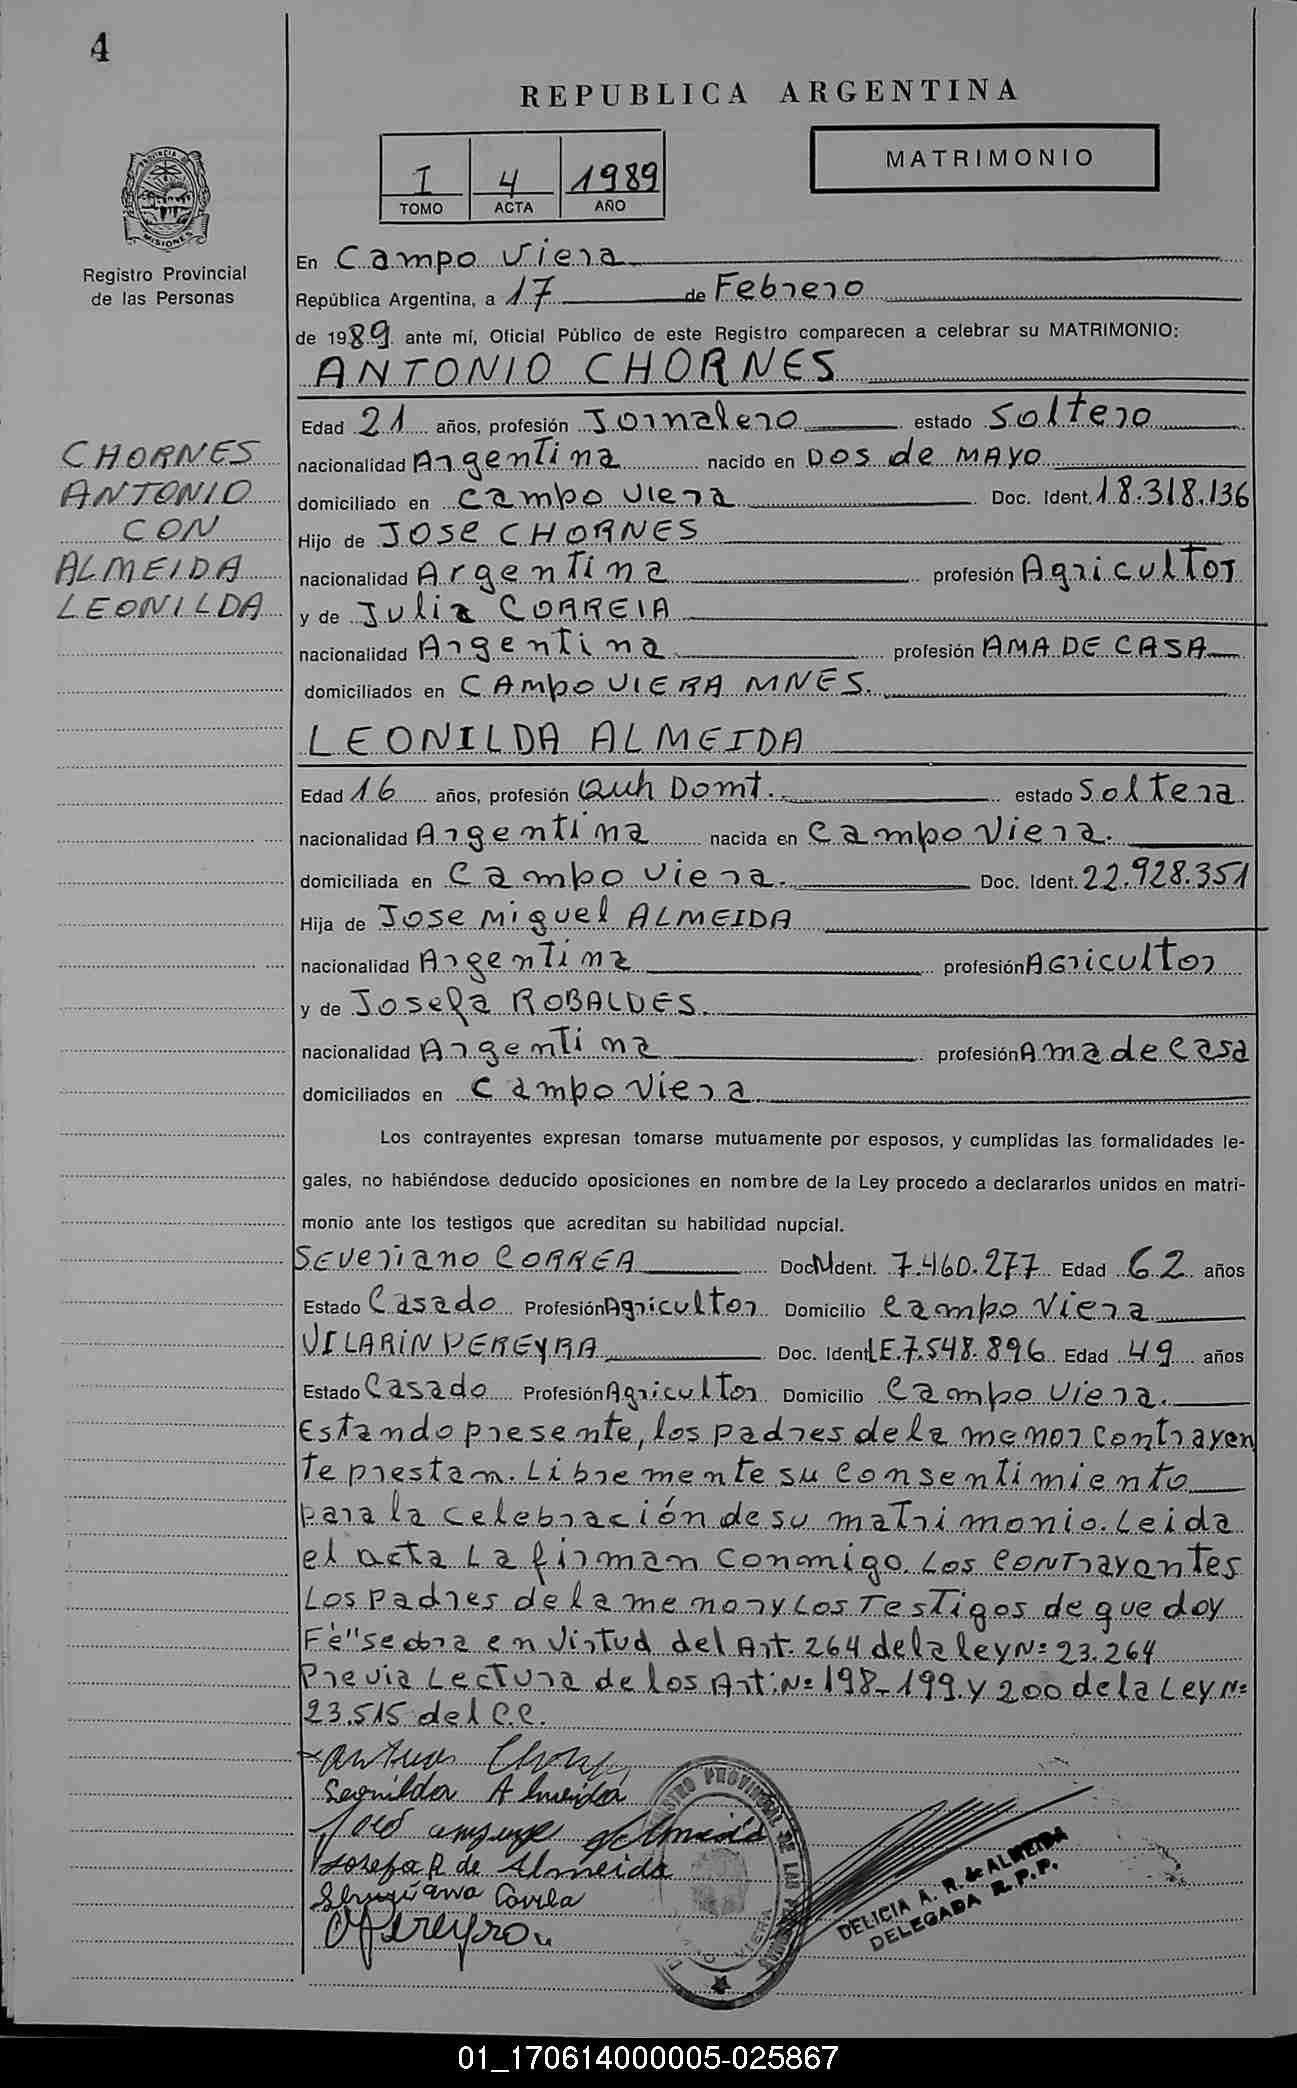 4
REPUBLICA ARGENTINA
I 4 1989
TOMO ACTA AÑO
MATRIMONIO
PROVINCIA DE MISIONES
Registro Provincial
de las Personas
En Campo Viera
República Argentina, a 17 de Febrero
de 1989 ante mí, Oficial Público de este Registro comparecen a celebrar su MATRIMONIO:
ANTONIO CHORNES
Edad 21 años, profesión Jornalero estado Soltero
nacionalidad Argentina nacido en DOS de MAYO
domiciliado en Campo Viera Doc. Ident. 18.318.136
Hijo de JOSE CHORNES
nacionalidad Argentina profesión Agricultor
y de Julia CORREIA
nacionalidad Argentina profesión AMA DE CASA
domiciliados en CAMpo VIERA MNES.
CHORNES
ANTONIO
CON
ALMEIDA
LEONILDA
LEONILDA ALMEIDA
Edad 16 años, profesión Quh Domt. estado Soltera
nacionalidad Argentina nacida en Campo Viera.
domiciliada en Campo Viera. Doc. Ident. 22.928.351
Hija de Jose Miguel ALMEIDA
nacionalidad Argentina profesión AGricultor
y de Josefa ROBALVES.
nacionalidad Argentina profesión Ama de Casa
domiciliados en Campo Viera
Los contrayentes expresan tomarse mutuamente por esposos, y cumplidas las formalidades le-
gales, no habiéndose deducido oposiciones en nombre de la Ley procedo a declararlos unidos en matri-
monio ante los testigos que acreditan su habilidad nupcial.
SEVeriano CORREA Doc M Ident. 7.460.277 Edad 62 años
Estado Casado Profesión Agricultor Domicilio Campo Viera
VILARIN PEREYRA Doc. Ident LE.7.548.896 Edad 49 años
Estado Casado Profesión Agricultor Domicilio Campo Viera.
Estando presente, los padres de la menor Contrayen
te prestam. Libremente su Consentimiento
para la celebración de su matrimonio. Leida
el acta La firman conmigo. Los CONTrayentes
Los padres de la menor y Los Testigos de que doy
Fé" se obra en Virtud del Art. 264 de la ley Nº 23.264
Previa Lectura de los Art. Nº 198-199. y 200 de la Ley Nº
23.515 del C.C.
Leonilda Almeida
Josefa R. de Almeida
Pereyra
REGISTRO PROVINCIAL DE LAS PERSONAS
DELICIA A. R. de ALMEIDA
DELEGADA R. P. P.
01_170614000005-025867